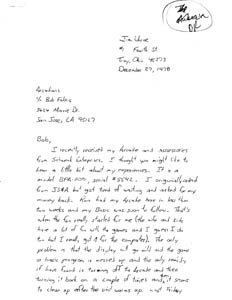 Jim
Fourth St
Troy, Ohio 45373
December 27, 1978
Arcadians
℅ Bob Fabris
3626 Morrie Dr.
San Jose, CA 95127
Bob,
I recently received my Arcade and accessories
from Schwenk Enterprises. I thought you might like to
hear a little bit about my experiences. It is a
model BPA-1100, serial I originally asked
from JS&A but got tired of waiting and asked for my
money back. Ken had my Arcade here in less than
two weeks and my Basic was soon to follow. That's
when the fun really started for me (the wife and kids
have a lot of fun with the games and I guess I do
too but I really got it for the computer). The only
problem is that the display will go wild and the game
or basic program is messed up and the only remedy
I have found is turning off the Arcade and then
turning it back on a couple of times and it seems
to clear up after the unit warms up. Last Friday